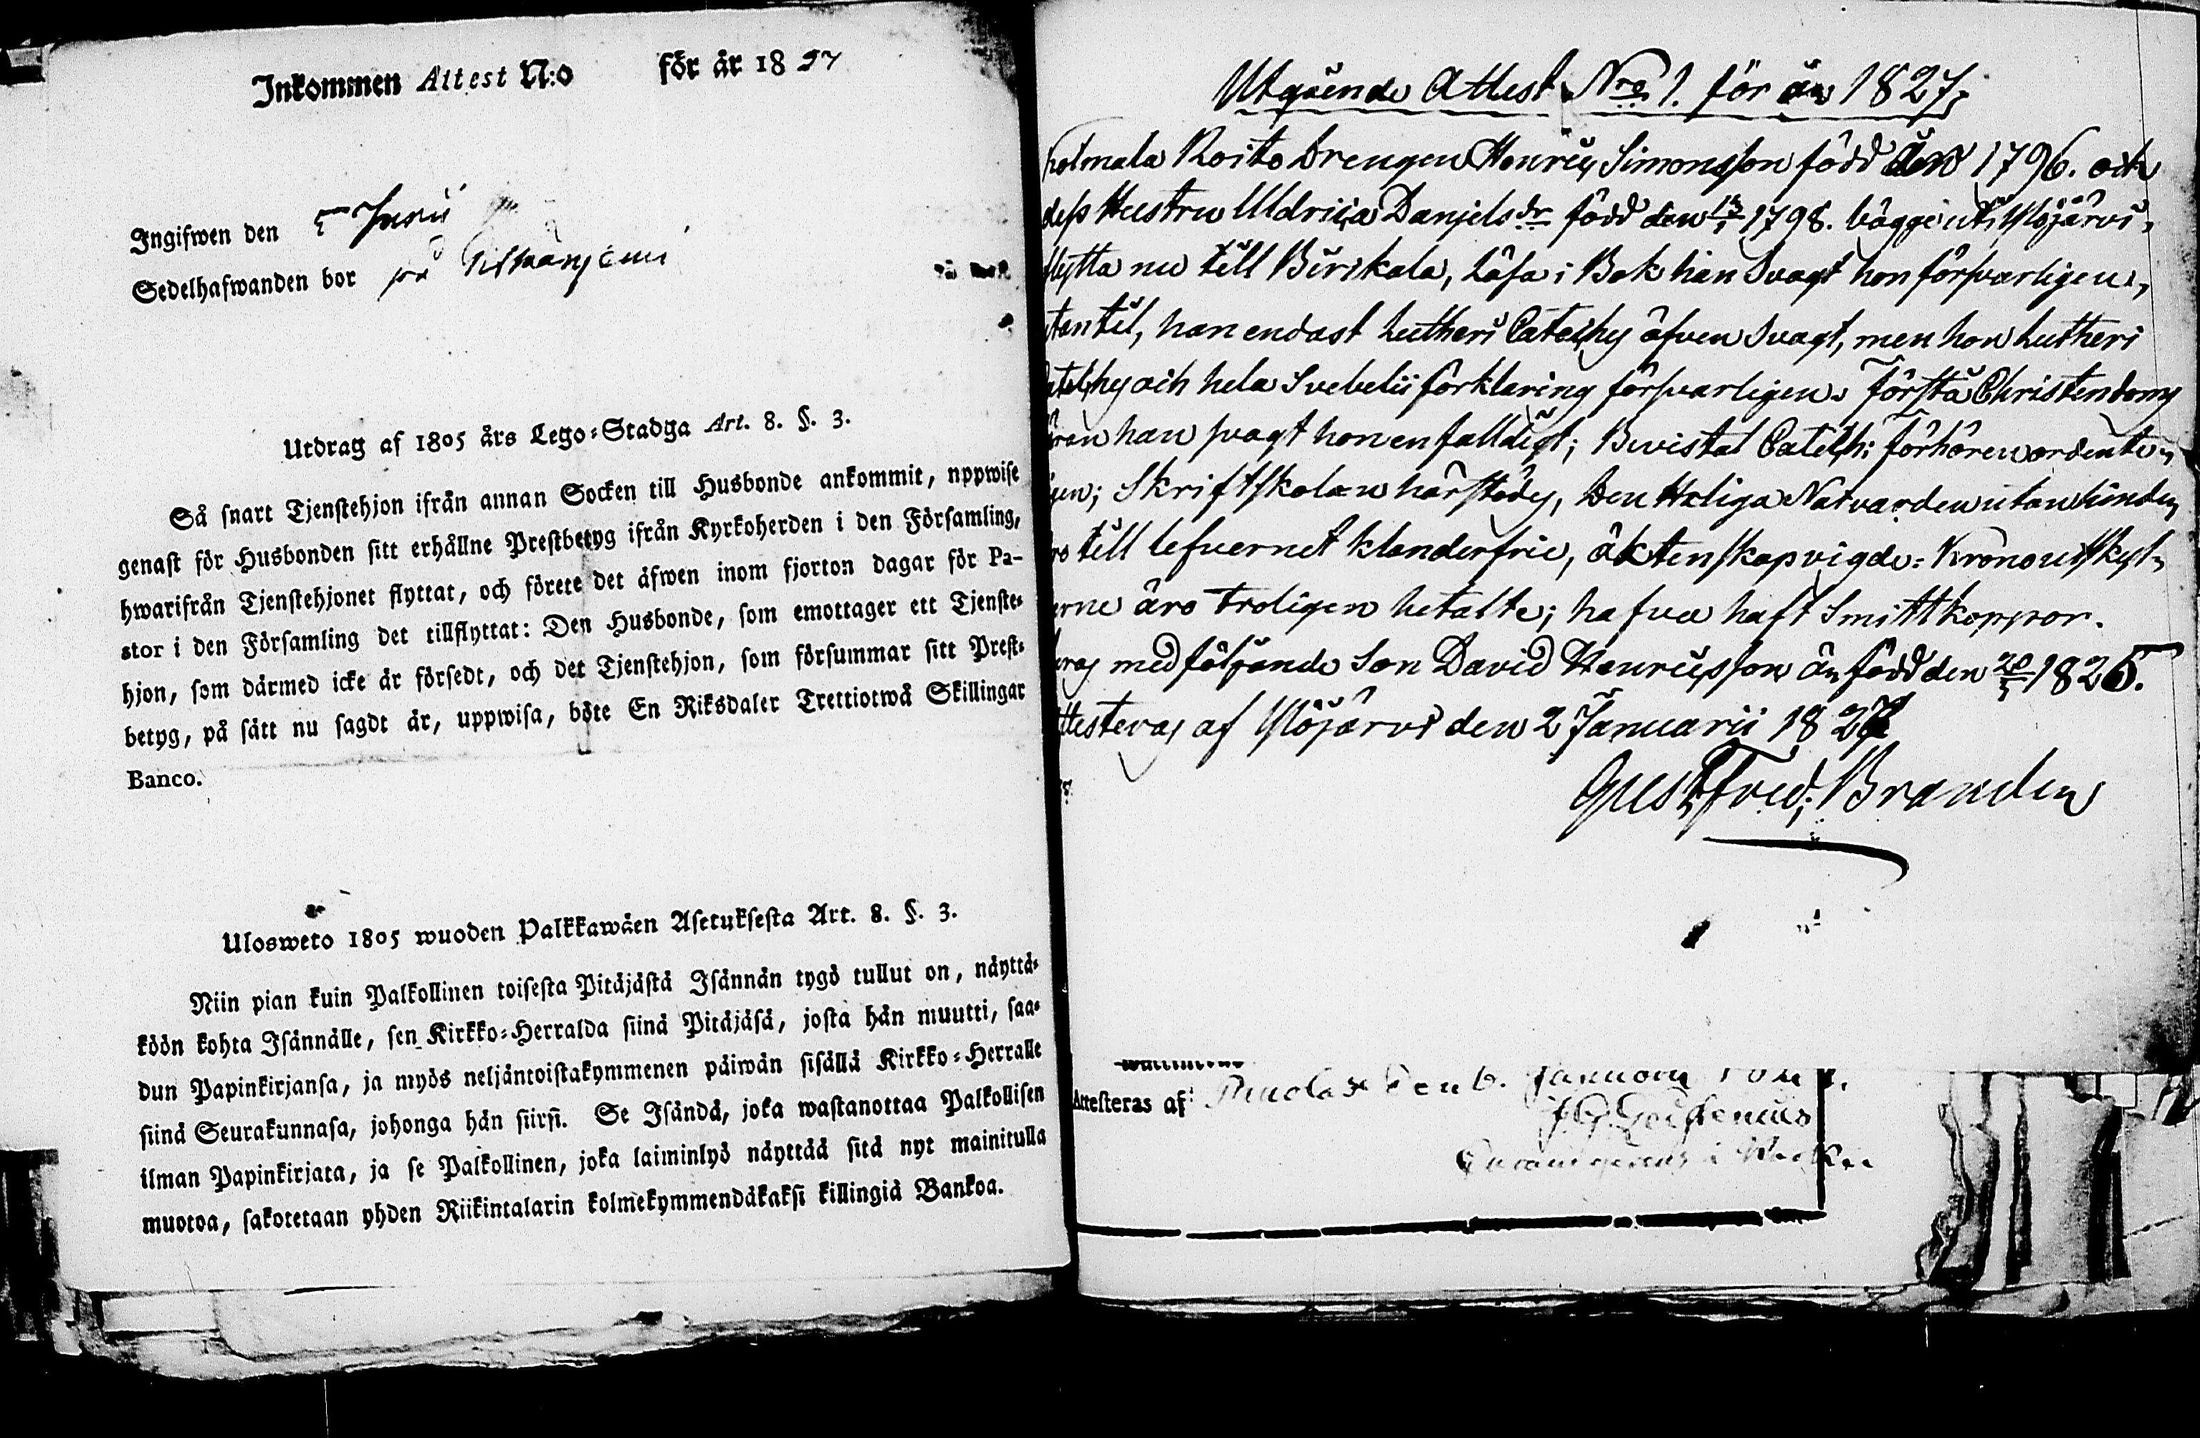 Inkommen Attest N:o för år 1827
Ingifwen den 5 Junii
Sedelhafwanden bor på
Utdrag af 1805 års Lego-Stadga Art. 8. §. 3.
Så snart Tjenstehjon ifrån annan Socken till Husbonde ankommit, uppwise
genast för Husbonden sitt erhållne Prestbetyg ifrån Kyrkoherden i den Församling,
hwarifrån Tjenstehjonet flyttat, och förete det äfwen inom fjorton dagar för Pa-
stor i den Församling det tillflyttat: Den Husbonde, som emottager ett Tjenste-
hjon, som därmed icke är försedt, och det Tjenstehjon, som försummar sitt Prest-
betyg, på sätt nu sagdt är, uppwisa, böte En Riksdaler Trettiotwå Skillingar
Banco.
Ulosweto 1805 wuoden Palkkawäen Asetuksesta Art. 8. §. 3.
Niin pian kuin Palkollinen toisesta Pitäjästä Isännän tygö tullut on, näyttä-
köön kohta Isännälle, sen Kirkko-Herralda siinä Pitäjäsä, josta hän muutti, saa-
dun Papinkirjansa, ja myös neljäntoistakymmenen päiwän sisällä Kirkko-Herralle
siinä Seurakunnasa, johonga hän siirsi. Se Isändä, joka wastanottaa Palkollisen
ilman Papinkirjata, ja se Palkollinen, joka laiminlyö näyttää sitä nyt mainitulla
muotoa, sakotetaan yhden Riikintalarin kolmekymmendäkaksi killingiä Bankoa.
Utgående Attest Nro 1. för år 1827;
Roito Drengen Henric Simonsson född den 1796. och
dess Hustru Uldrica Danjels dr född den 13/1 1798. bägge uti Ylöjärvi,
flytta nu till Birckala, läsa i Bok han Svagt hon försvarligen,
utantil, han endast Lutheri Cateches äfven Svagt, men hon Lutheri
Cateches och hela Svebelii förklaring försvarligen. Förstå Christendoms
läran han svagt hon enfalldigt; Bevistat Catech: förhören ordente-
ligen; Skriftskolan härstädes, Den Heliga Natvarden utan hinder,
äro till lefvernet klanderfrie, äktenskap vigde: Kronoutskyl-
derne äro troligen betalte; hafva haft Smittkoppor.
deras medföljande Son David Henricsson är född den 20/5 1825.
Attesteras af Ylöjärvi den 2 Januarii 1827
Gust. Fred: Brander
Attesteras af den 6. Januarii